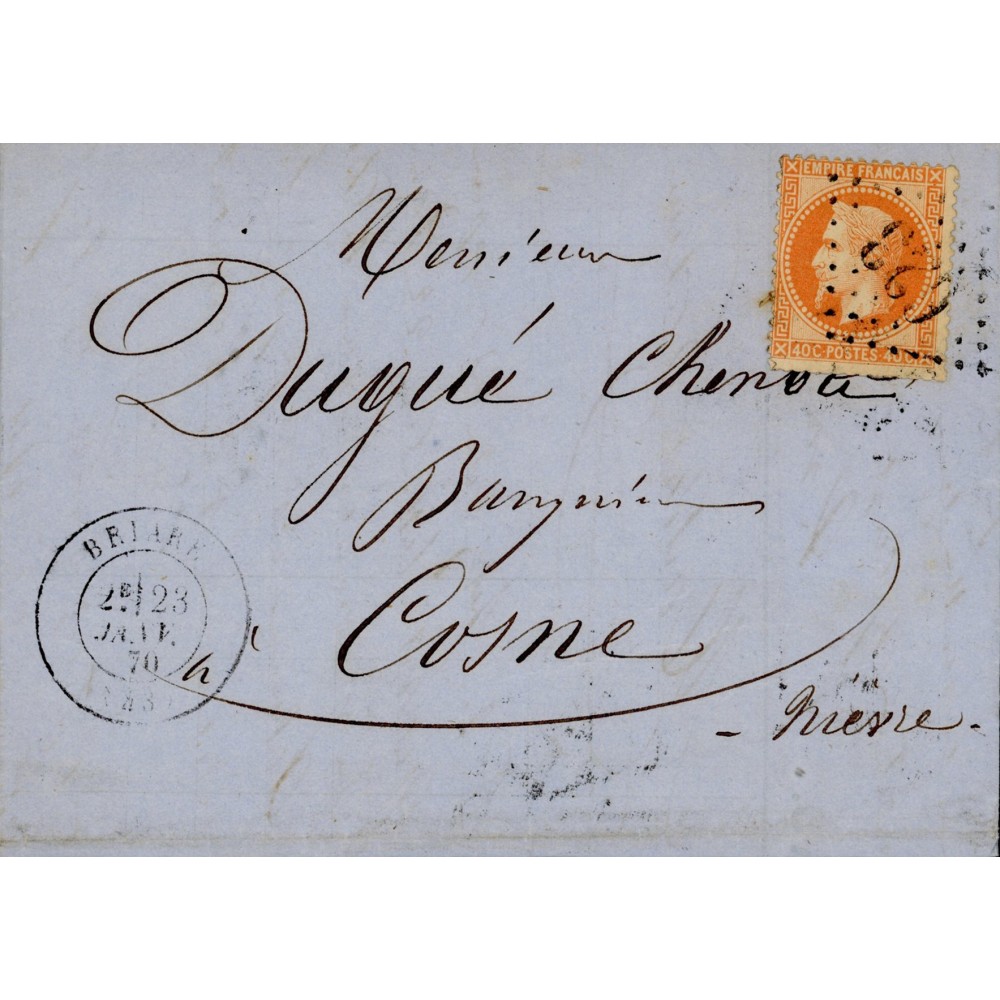 EMPIRE FRANÇAIS
40C·POSTES·40C
Monsieur
Dugué Chenou
Banquier
à Cosne
- Nièvre -
BRIARE
2E/ 23
JANV.
70
(43)